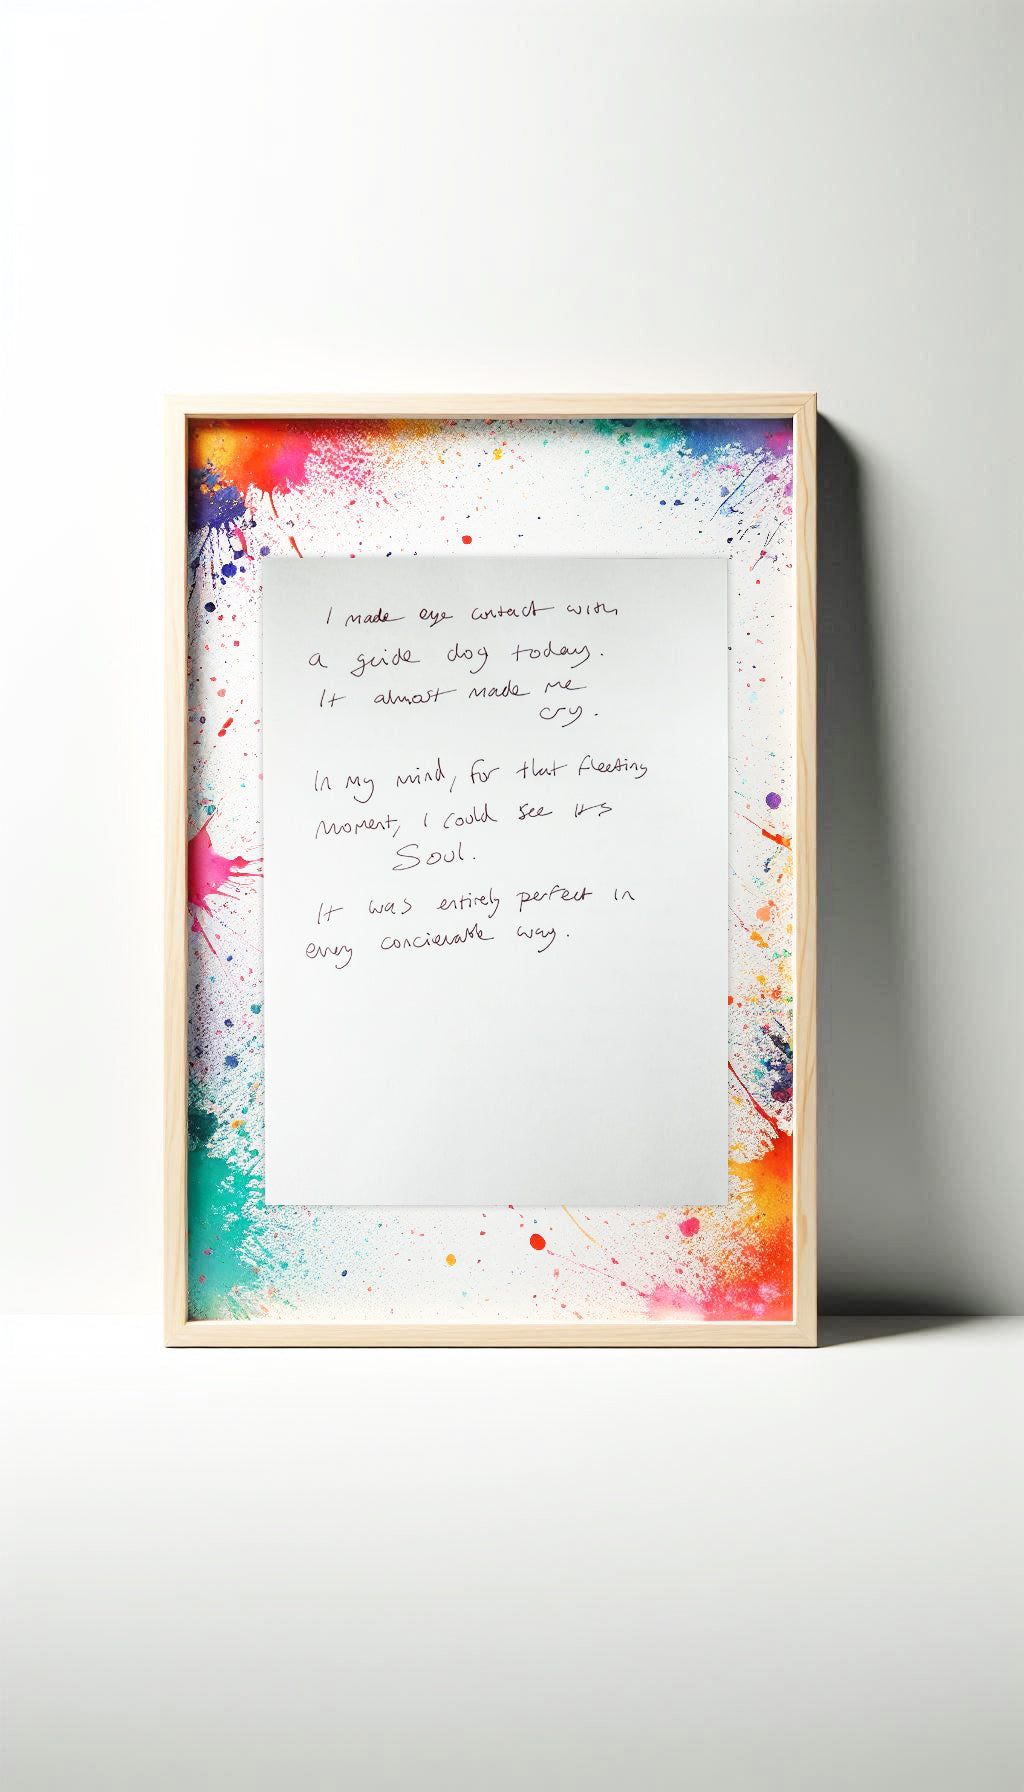 I made eye contact with
a guide dog today.
It almost made me
cry.
In my mind, for that fleeting
moment, I could see its
Soul.
It was entirely perfect in
every concievable way.